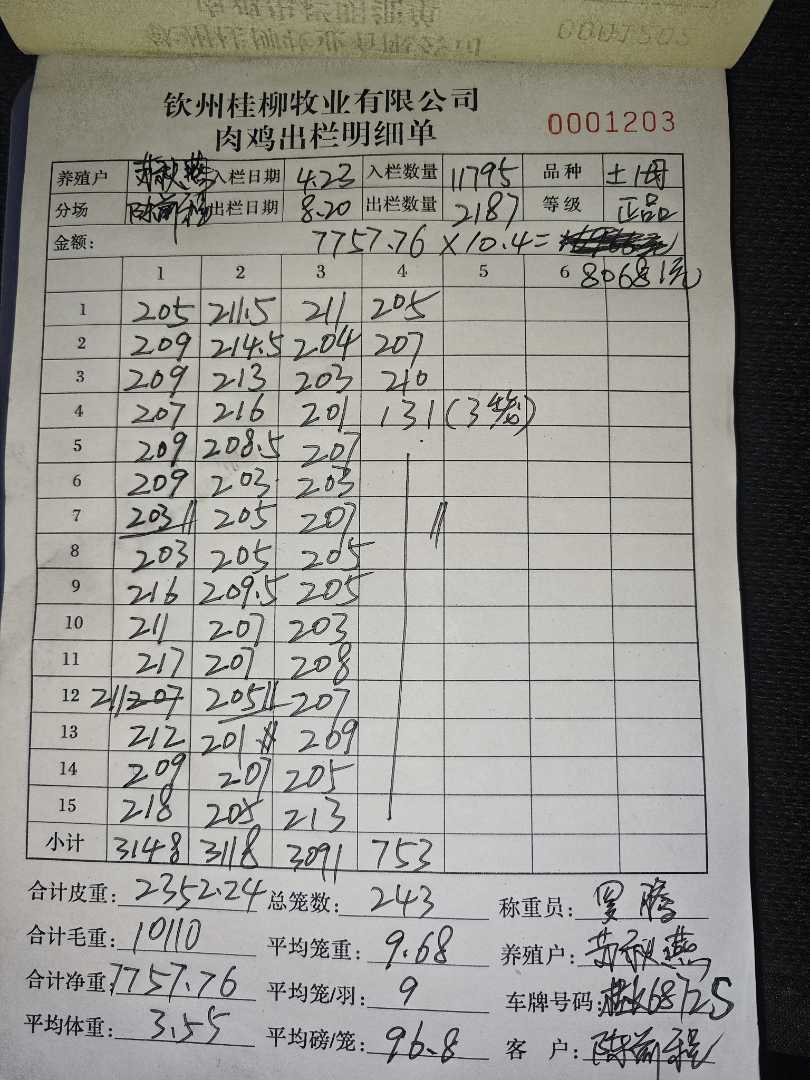 0001202
钦州桂柳牧业有限公司
肉鸡出栏明细单 0001203
养殖户 苏秋燕 入栏日期 4.23 入栏数量 11795 品种 土1母
分场 陈前程 出栏日期 8.20 出栏数量 2187 等级 正品
金额: 7757.76×10.4=
80681元
1 2 3 4 5 6
1 205 211.5 211 205
2 209 214.5 204 207
3 209 213 203 210
4 207 216 201 131(3笼)
5 209 208.5 207
6 209 203 203
7 203 205 207
8 203 205 205
9 216 209.5 205
10 211 207 203
11 217 207 208
12 211 207 205 207
13 212 201 209
14 209 207 205
15 218 205 213
小计 3148 3118 3091 753
合计皮重: 2352.24 总笼数: 243 称重员: 罗腾
合计毛重: 10110 平均笼重: 9.68 养殖户: 苏秋燕
合计净重: 7757.76 平均笼/羽: 9 车牌号码:
平均体重: 3.55 平均磅/笼: 96.8 客 户: 陈前程